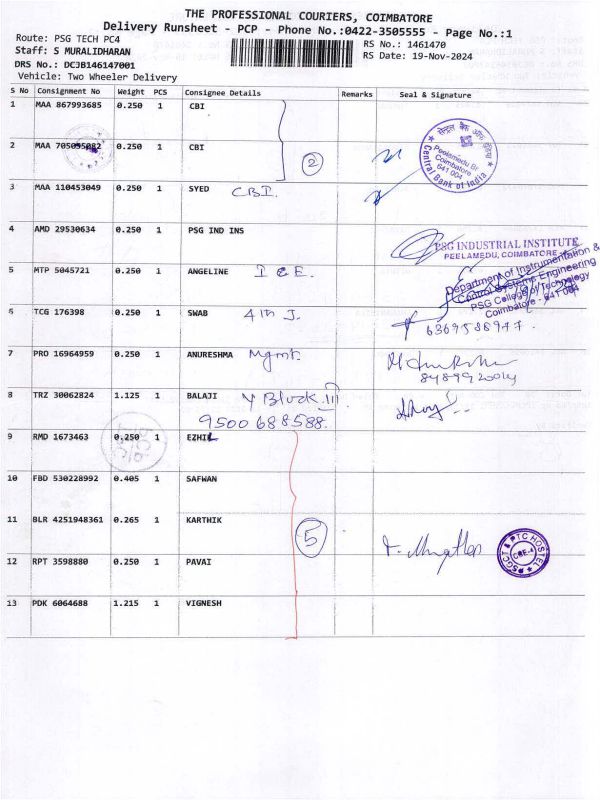 THE PROFESSIONAL COURIERS, COIMBATORE
Delivery Runsheet - PCP - Phone No.:0422-3505555 - Page No.:1
Route: PSG TECH PC4
RS No.: 1461470
Staff: S MURALIDHARAN
RS Date: 19-Nov-2024
DRS No.: DCJB146147001
Vehicle: Two Wheeler Delivery
S No Consignment No Weight PCS Consignee Details Remarks Seal & Signature
1 MAA 867993685 0.250 1 CBI
2 MAA 705095082 0.250 1 CBI
2
सेन्ट्रल बैंक ऑफ इंडिया
Peelamedu Br.
Coimbatore
641 004
Central Bank of India
3 MAA 110453049 0.250 1 SYED CBI.
4 AMD 29530634 0.250 1 PSG IND INS
PSG INDUSTRIAL INSTITUTE
PEELAMEDU, COIMBATORE
5 MTP 5045721 0.250 1 ANGELINE I C E.
Department of Instrumentation &
Control Systems Engineering
PSG College of Technology
Coimbatore - 641 004
6 TCG 176398 0.250 1 SWAB 4th J.
6369538977.
7 PRO 16964959 0.250 1 ANURESHMA Mgmt.
8489920014
8 TRZ 30062824 1.125 1 BALAJI Y Block III
9500688588.
9 RMD 1673463 0.250 1 EZHIL
10 FBD 530228992 0.405 1 SAFWAN
11 BLR 4251948361 0.265 1 KARTHIK
5
SGCT & PTC HOSTEL
CBE-4
12 RPT 3598880 0.250 1 PAVAI
13 PDK 6064688 1.215 1 VIGNESH